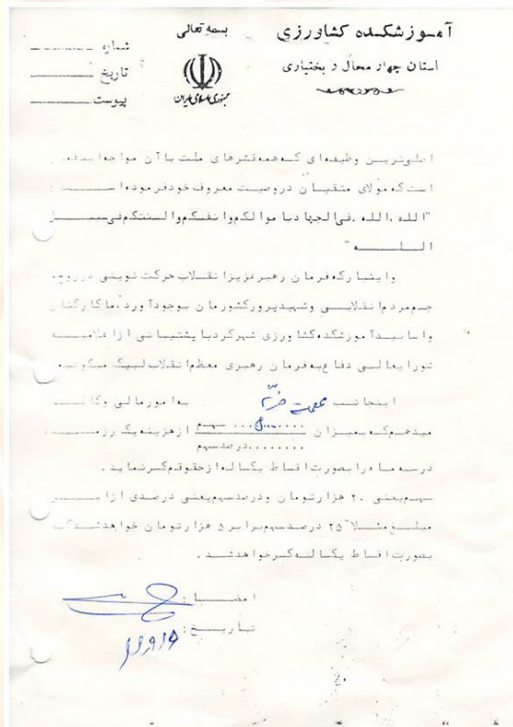 آموزشکده کشاورزی
استان چهار محال و بختیاری
بسمه تعالی
جمهوری اسلامی ایران
شماره
تاریخ
پیوست
اصلی‌ترین وظیفه‌ای که همه قشرهای ملت با آن مواجه
است که مولای متقیان در وصیت معروف خود فرموده
"الله، الله، فی الجهاد باموالکم وانفسکم والسنتکم فی سبیل
الله"
و اینبار که فرمان رهبر عزیز انقلاب حرکت نوینی در روح
جمع مردم انقلابی و شهیدپرور کشورمان بوجود آورد، ما کارکنان
و اساتید آموزشکده کشاورزی شهرکرد با پشتیبانی از اعلامیه
شورایعالی دفاع به فرمان رهبری معظم انقلاب لبیک
اینجانب به امور مالی
میدهم که بمیزان .......... سهم از هزینه یک
.......... درصد سهم
در سه ماه را بصورت اقساط یکساله از حقوقم کسر نماید.
سهم یعنی ۲۰ هزار تومان و درصد سهم یعنی درصدی از
مبلغ مثلا" ۲۵ درصد سهم برابر ۵ هزار تومان خواهد شد
بصورت اقساط یکساله کسر خواهد شد.
امضاء:
تاریخ: